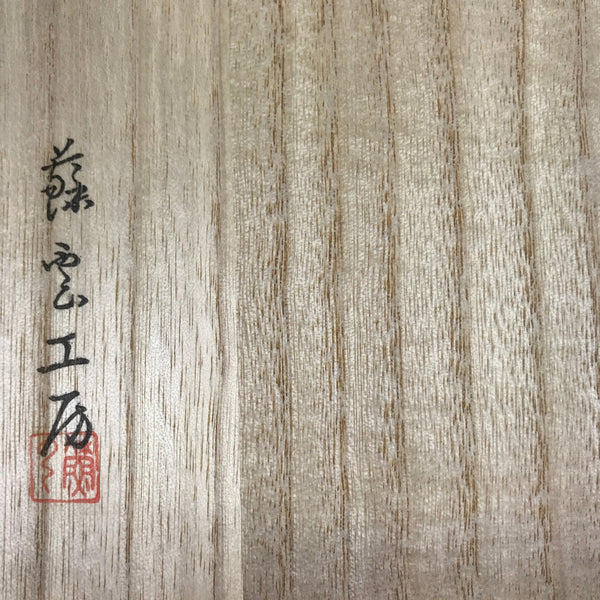 藤雲工房